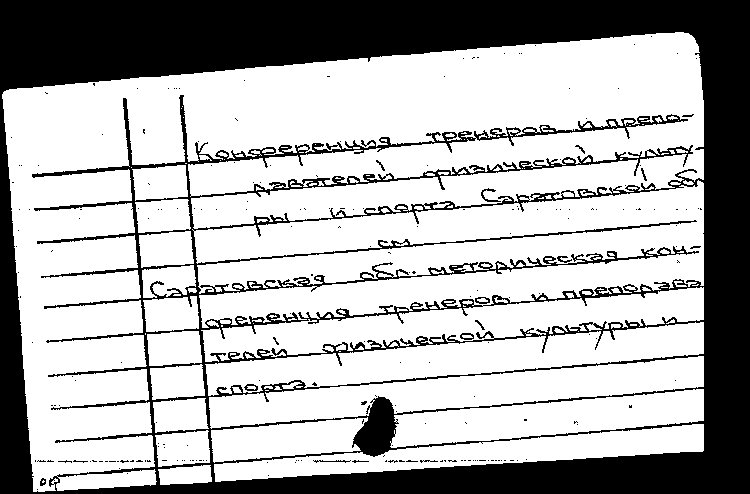 Конференция тренеров и препо-
давателей физической культу-
ры и спорта Саратовской обл
см.
Саратовская обл. методическая кон-
ференция тренеров и преподава
телей физической культуры и
спорта.